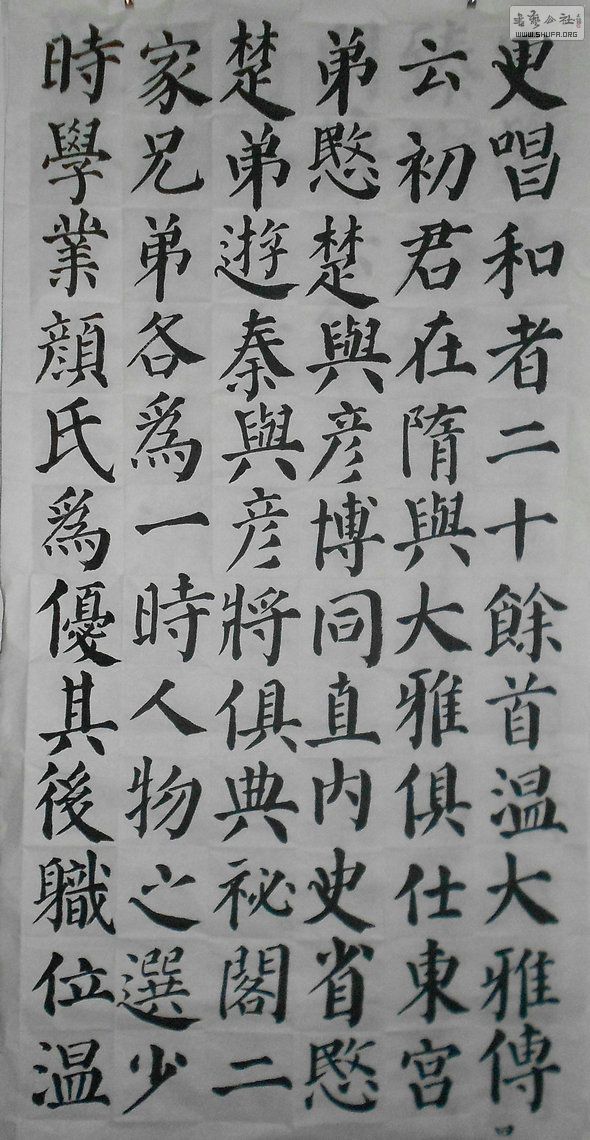 更唱和者二十餘首溫大雅傳
云初君在隋與大雅俱仕東宮
弟愍楚與彦博同直內史省愍
楚弟遊秦與彦將俱典祕閣二
家兄弟各爲一時人物之選少
時學業顏氏爲優其後職位溫
書藝公社
WWW.SHUFA.ORG